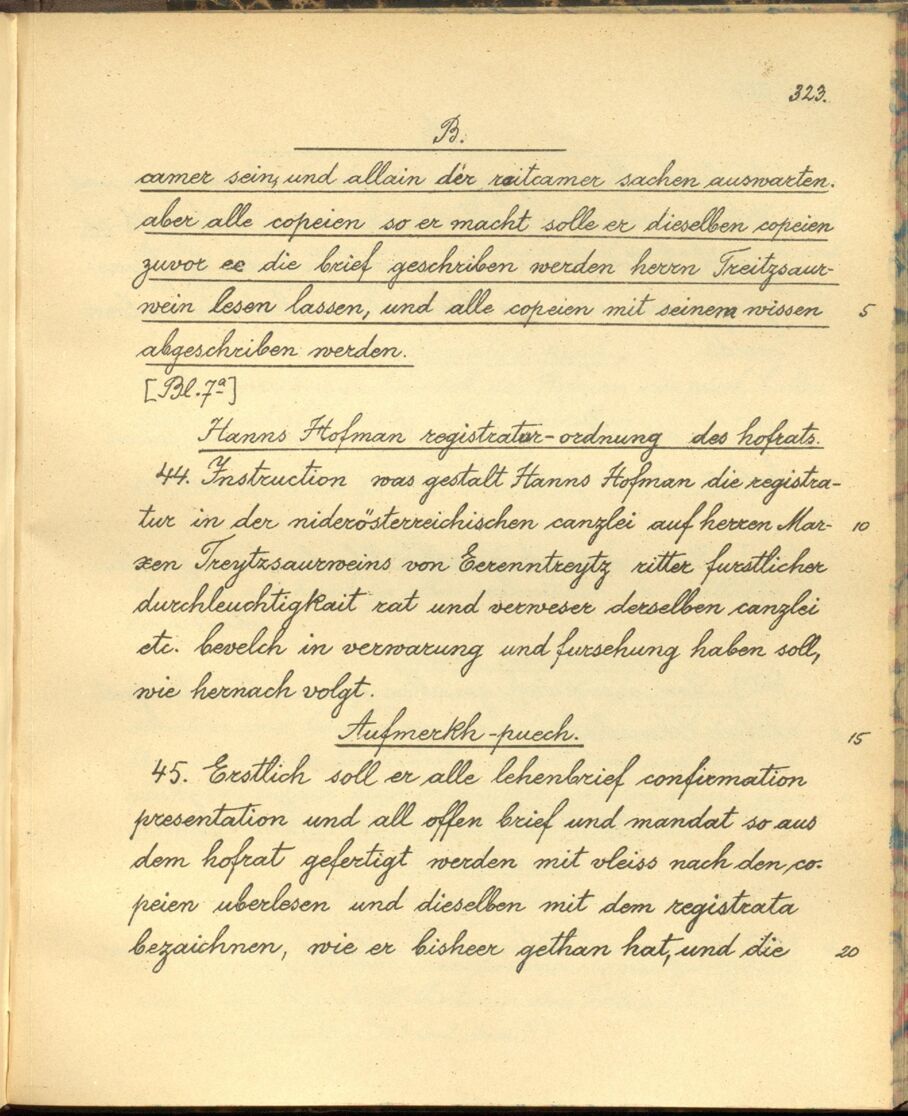 323.
B.
camer sein, und allain der raitcamer sachen auswarten.
aber alle copeien so er macht solle er dieselben copeien
zuvor ee die brief geschriben werden herrn Treitzsaur-
wein lesen lassen, und alle copeien mit seinem wissen 5
abgeschriben werden.
[Bl. 7a]
Hanns Hofman registratur-ordnung des hofrats.
44. Instruction was gestalt Hanns Hofman die registra-
tur in der niderösterreichischen canzlei auf herren Mar- 10
xen Treytzsaurweins von Eerenntreytz ritter furstlicher
durchleuchtigkait rat und verweser derselben canzlei
etc. bevelch in verwarung und fursehung haben soll,
wie hernach volgt.
Aufmerkh-puech. 15
45. Erstlich soll er alle lehenbrief confirmation
presentation und all offen brief und mandat so aus
dem hofrat gefertigt werden mit vleiss nach den co-
peien uberlesen und dieselben mit dem registrata
bezaichnen, wie er bisheer gethan hat, und die 20